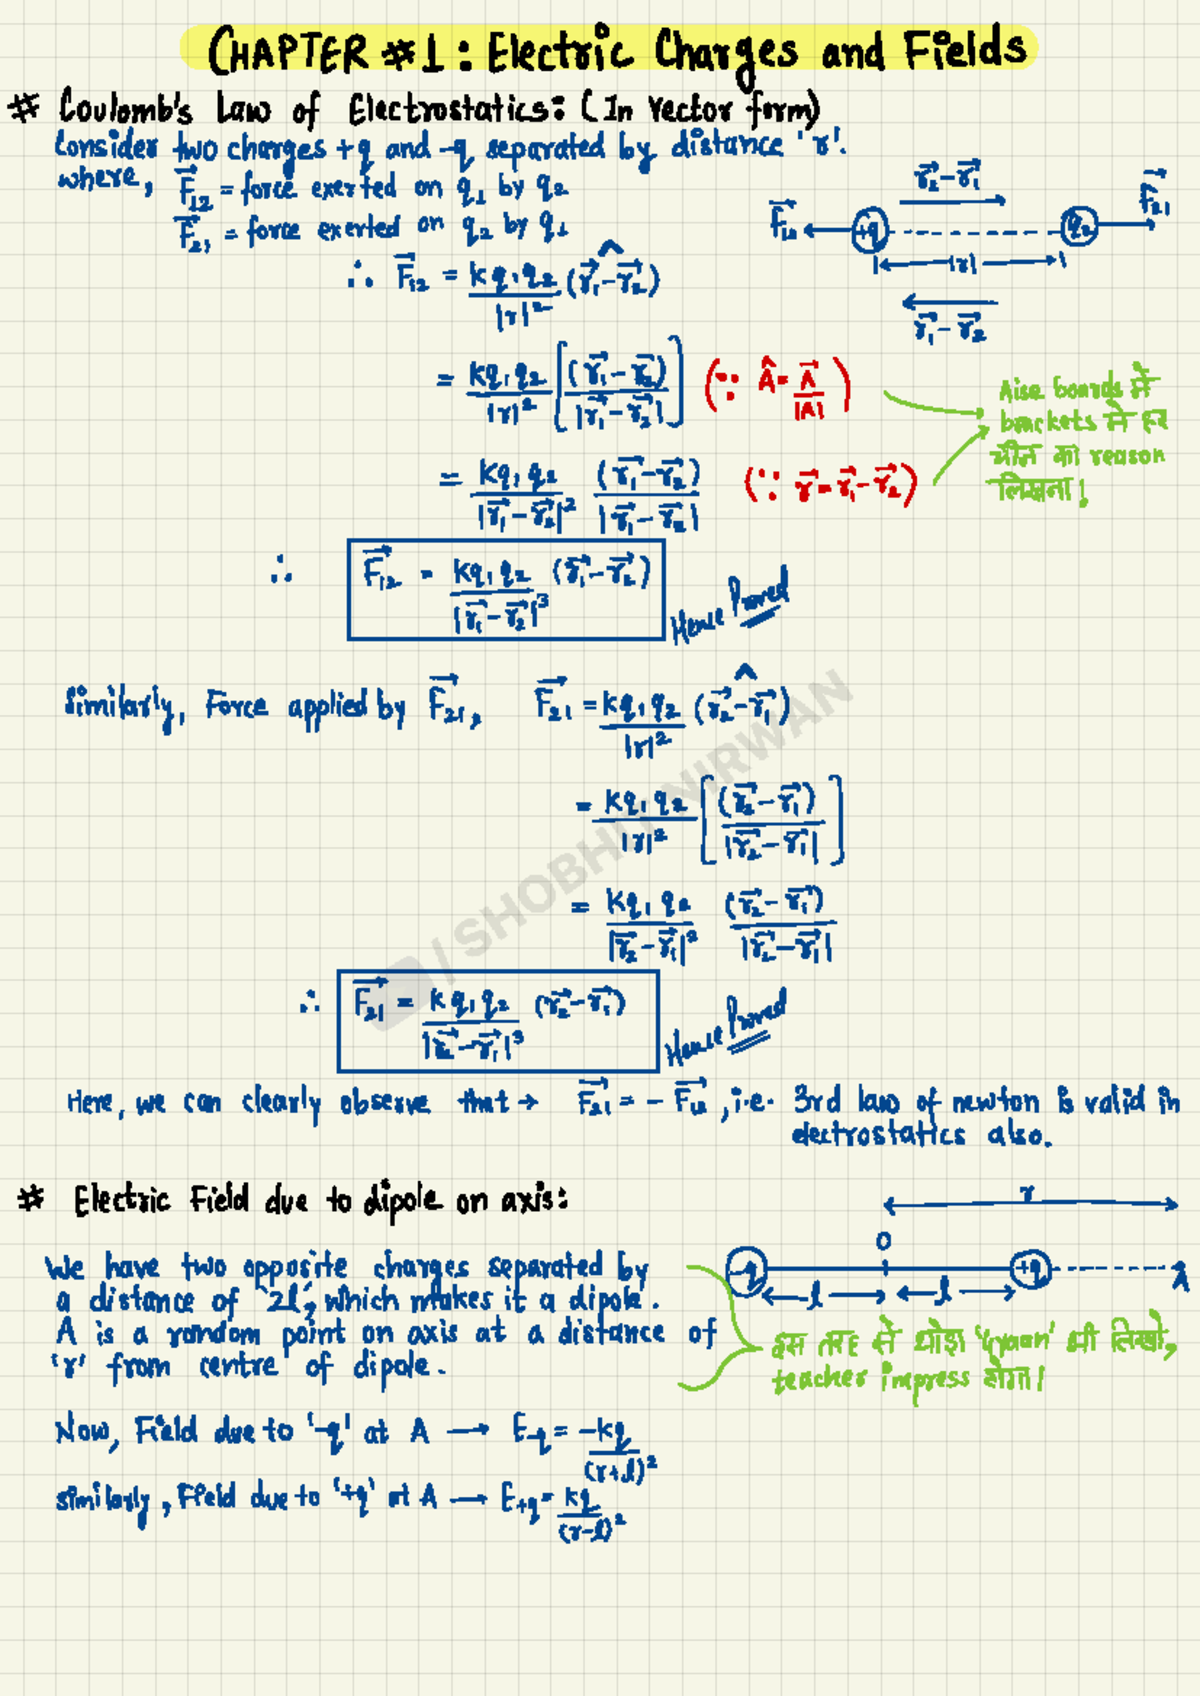 CHAPTER #1: Electric Charges and Fields
# Coulomb's Law of Electrostatics: (In vector form)
Consider two charges +q and -q separated by distance 'r'.
where, F⃗₁₂ = force exerted on q₁ by q₂
F⃗₂₁ = force exerted on q₂ by q₁
r⃗₂-r⃗₁
F⃗₁₂ +q q₂ F⃗₂₁
|r|
r⃗₁-r⃗₂
∴ F⃗₁₂ = kq₁q₂/|r|² (r⃗₁-r⃗₂)^
= kq₁q₂/|r|² [(r⃗₁-r⃗₂)/|r⃗₁-r⃗₂|] (∵ Â = A⃗/|A|)
= kq₁q₂/|r⃗₁-r⃗₂|² (r⃗₁-r⃗₂)/|r⃗₁-r⃗₂| (∵ r⃗ = r⃗₁-r⃗₂)
Aise boards में
brackets में हर
चीज का reason
लिखना!
∴ F⃗₁₂ = kq₁q₂/|r⃗₁-r⃗₂|³ (r⃗₁-r⃗₂) Hence Proved
Similarly, Force applied by F⃗₂₁, F⃗₂₁ = kq₁q₂/|r|² (r⃗₂-r⃗₁)^
= kq₁q₂/|r|² [(r⃗₂-r⃗₁)/|r⃗₂-r⃗₁|]
= kq₁q₂/|r⃗₂-r⃗₁|² (r⃗₂-r⃗₁)/|r⃗₂-r⃗₁|
∴ F⃗₂₁ = kq₁q₂/|r⃗₂-r⃗₁|³ (r⃗₂-r⃗₁) Hence Proved
/ SHOBHIT NIRWAN
Here, we can clearly observe that → F⃗₂₁ = - F⃗₁₂, i.e. 3rd law of newton is valid in
electrostatics also.
# Electric Field due to dipole on axis:
r
O
-q +q A
l l
We have two opposite charges separated by
a distance of '2l', which makes it a dipole.
A is a random point on axis at a distance of
'r' from centre of dipole.
इस तरह से थोड़ा 'Gyaan' भी लिखो,
teacher impress होगा!
Now, Field due to '-q' at A → E-q = -kq/(r+l)²
similarly, Field due to '+q' at A → E+q = kq/(r-l)²